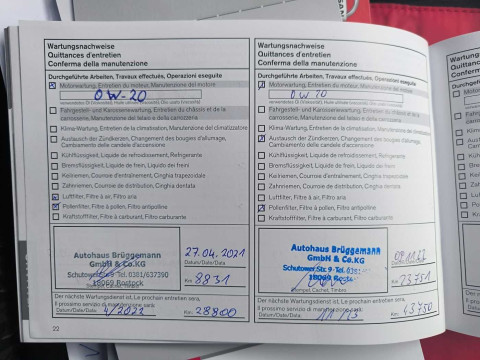 Wartungsnachweise
Quittances d'entretien
Conferma della manutenzione
Durchgeführte Arbeiten, Travaux effectués, Operazioni eseguite
Motorwartung, Entretien du moteur, Manutenzione del motore
0W-20
Fahrgestell- und Karosseriewartung, Entretien du châssis et de la
carrosserie, Manutenzione del telaio e della carrozzeria
Klima-Wartung, Entretien du climatiseur, Manutenzione del climatizzatore
Austausch der Zündkerzen, Changement des bougies d'allumage,
Cambiamento delle candele d'accensione
Kühlflüssigkeit, Liquide de refroidissement, Refrigerante
Bremsflüssigkeit, Liquide de frein, Liquido dei freni
Keilriemen, Courroie d'entraînement, Cinghia trapezoidale
Zahnriemen, Courroie de distribution, Cinghia dentata
Luftfilter, Filtre à air, Filtro aria
Pollenfilter, Filtre à pollen, Filtro antipolline
Kraftstofffilter, Filtre à carburant, Filtro carburante
Autohaus Brüggemann
GmbH & Co.KG
Schutower Str. 9 - Tel. 0381/637390
18069 Rostock
27.04.2021
Datum/Date/Data
Km: 8831
Der nächste Wartungsdienst ist, Le prochain entretien sera,
Il prossimo servizio di manutenzione sarà:
Datum/Date/Data: 4/2022 Km: 28800
22
Wartungsnachweise
Quittances d'entretien
Conferma della manutenzione
Durchgeführte Arbeiten, Travaux effectués, Operazioni eseguite
Motorwartung, Entretien du moteur, Manutenzione del motore
0W-20
Fahrgestell- und Karosseriewartung, Entretien du châssis et de la
carrosserie, Manutenzione del telaio e della carrozzeria
Klima-Wartung, Entretien du climatiseur, Manutenzione del climatizzatore
Austausch der Zündkerzen, Changement des bougies d'allumage,
Cambiamento delle candele d'accensione
Kühlflüssigkeit, Liquide de refroidissement, Refrigerante
Bremsflüssigkeit, Liquide de frein, Liquido dei freni
Keilriemen, Courroie d'entraînement, Cinghia trapezoidale
Zahnriemen, Courroie de distribution, Cinghia dentata
Luftfilter, Filtre à air, Filtro aria
Pollenfilter, Filtre à pollen, Filtro antipolline
Kraftstofffilter, Filtre à carburant, Filtro carburante
Autohaus Brüggemann
GmbH & Co.KG
Schutower Str. 9 - Tel. 0381
18069 Rostock
Stempel, Cachet, Timbro
Datum/Date/Data
Km: 23751
Der nächste Wartungsdienst ist, Le prochain entretien sera,
Il prossimo servizio di manutenzione sarà:
Datum/Date/Data: Km: 43750